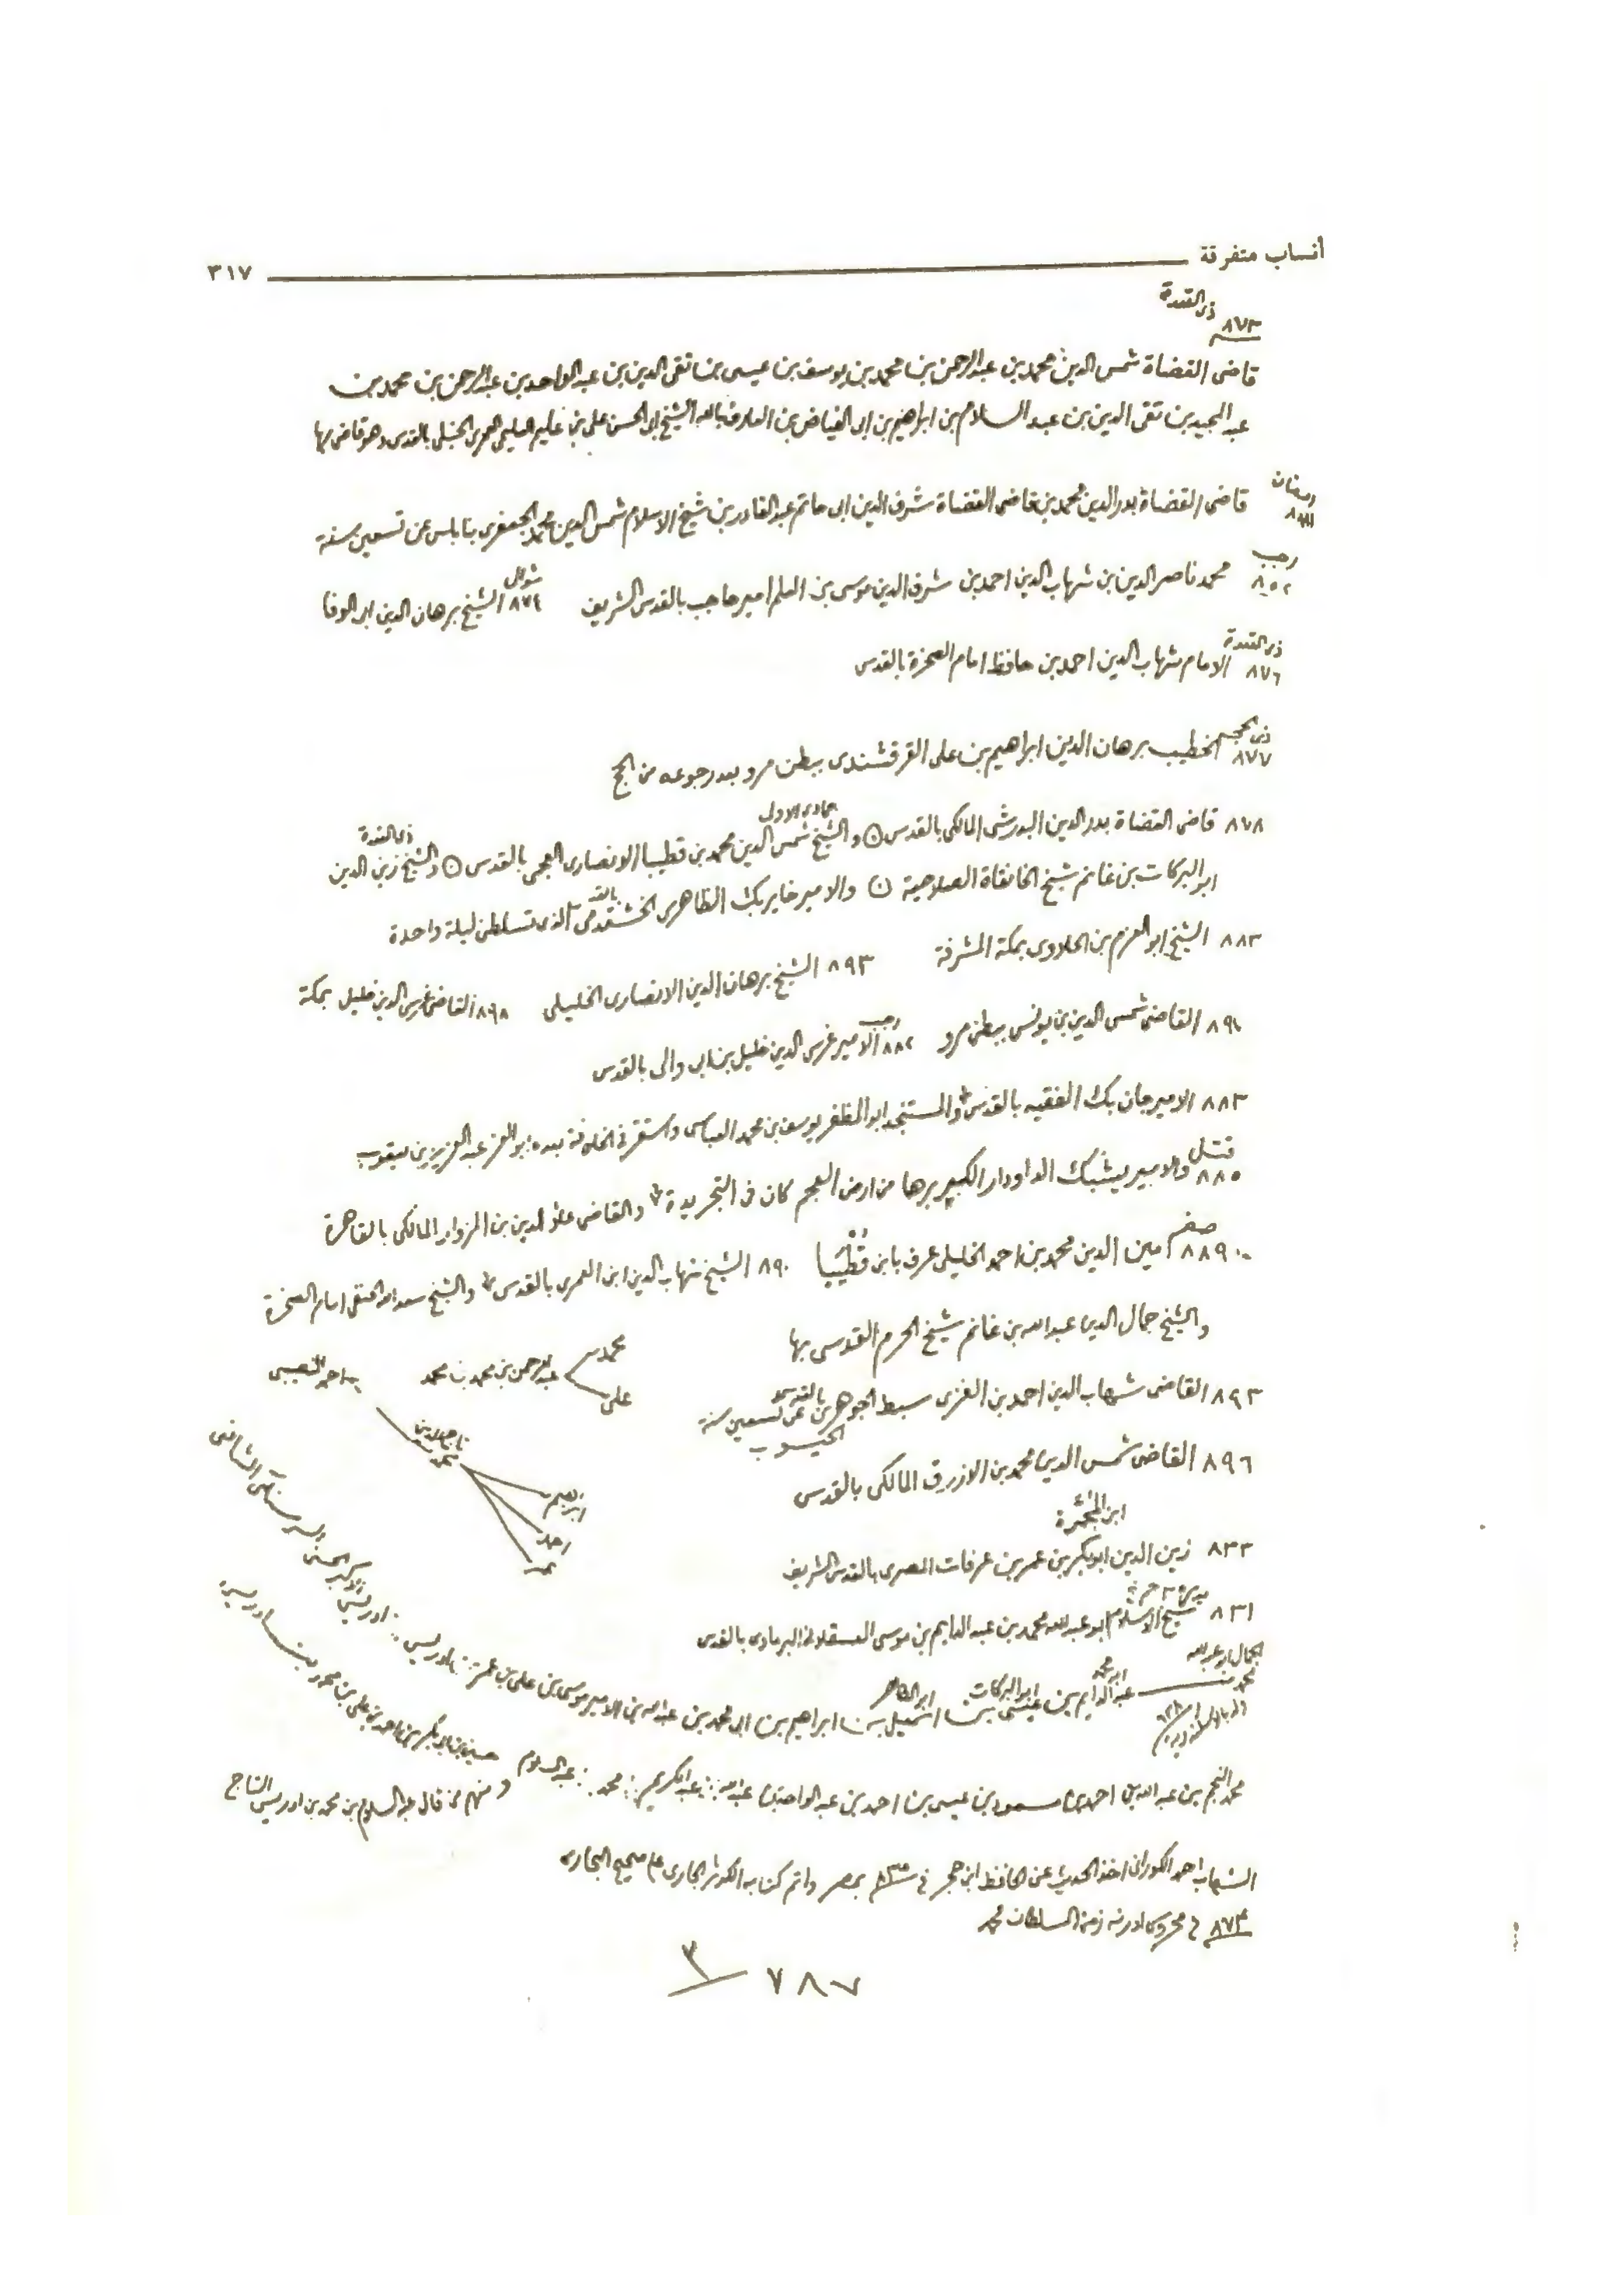 أنساب متفرقة ٣١٧
ذى القعدة
٨٧٣
قاضى القضاة شمس الدين محمد بن عبد الرحمن بن محمد بن يوسف بن عيسى بن تقى الدين بن عبد الواحد بن عبد الرحمن بن محمد بن
عبد المجيد بن تقى الدين بن عبد السلام بن ابراهيم بن ابى الفياض بن العارف بالله الشيخ ابى الحسن على بن عليم العليمى العمرى الحنبلى بالقدس وهو قاضى بها
رمضان
قاضى القضاة بدر الدين محمد بن قاضى القضاة شرف الدين ابى حاتم عبد القادر بن شيخ الاسلام شمس الدين محمد الجعفرى بنابلس عن تسعين سنة
رجب ٨٥٢ محمد ناصر الدين بن شهاب الدين احمد بن شرف الدين موسى بن العلم امير حاجب بالقدس الشريف شوال ٨٧٤ الشيخ برهان الدين ابو الوفا
ذى القعدة ٨٧٦ الامام شهاب الدين احمد بن حافظ امام الصخرة بالقدس
ذى الحجة ٨٧٧ الخطيب برهان الدين ابراهيم بن على القرقشندى ببطن مرو بعد رجوعه من الحج
جمادى الاول
٨٧٨ قاضى القضاة بدر الدين البورشى المالكى بالقدس ۞ والشيخ شمس الدين محمد بن قطيبا الانصارى العجمى بالقدس ۞ ذى القعدة والشيخ زين الدين
ابو البركات بن غانم شيخ الخانقاة الصلاحية ۞ والامير خاير بك الظاهرى الخشقدمى بالقد الذى تسلطن ليلة واحدة
٨٨٣ الشيخ ابو العزم بن الحلاوى بمكة المشرفة ٨٩٣ الشيخ برهان الدين الانصارى الخليلى ٨٩٨ القاضى غرس الدين خليل بمكة
القاضى شمس الدين بن يونس ببطن مرو رجب ٨٨٢ الامير غرس الدين خليل بن ابى والى بالقدس
٨٨٣ الامير جان بك الفقيه بالقدس والمستنجد ابو المظفر يوسف بن محمد العباسى واستقر فى الخلافة بعده ابو العز عبد العزيز بن يعقوب
قتل
٨٨٥ والامير يشبك الداودار الكبير برها من ارض العجم كان فى التجريدة والقاضى علاء الدين بن المزوار المالكى بالقاهرة
صفر
٨٨٩ امين الدين محمد بن احمد الخليلى عرف بابن قُطَيْبا ٨٩٠ الشيخ شهاب الدين ابن العمرى بالقدس والشيخ سعد الله الحنفى امام الصخرة
والشيخ جمال الدين عبد الله بن غانم شيخ الحرم القدسى بها
محمد
على
عبد الرحمن بن محمد بن محمد
احمد النصيبى
٨٩٣ القاضى شهاب الدين احمد بن الغزى سبط الجوهرى بالقدس عن تسعين سنة
الحيسوب
ناصر الدين
محمد
ابراهيم
احمد
عمر
٨٩٦ القاضى شمس الدين محمد بن الازرق المالكى بالقدس
ابن المجمرة
٨٣٣ زين الدين ابو بكر بن عمر بن عرفات المصرى بالقدس الشريف
٨٣١ شيخ الاسلام ابو عبد الله محمد بن عبد الدايم بن موسى العسقلانى البرماوى بالقدس
الجمال ابو عبد الله
محمد بن عبد الدايم بن عيسى بن ابو البركات اسمعيل بن ابو الطاهر ابراهيم بن ابى محمد بن عبد الله بن الامير موسى بن على بن عمر بن ادريس بن ادريس
ولد بالاسكندرية
حسين بن ابو بكر بن احمد بن على بن محمد بن
محمد النجم بن عبد الله بن احمد بن مسعود بن عيسى بن احمد بن عبد الواحد بن عبد الله عبد الكريم محمد عبد السلام ومنهم من قال عبد السلام بن محمد بن ادريس التاج
الشهاب احمد الكورانى اخذ الحديث عن الحافظ ابن حجر فى بمصر واتم كتابه الكوثر الجارى على صحيح البخارى
فى محروسة ادرنه زمن السلطان محمد
٧٨٧
٣